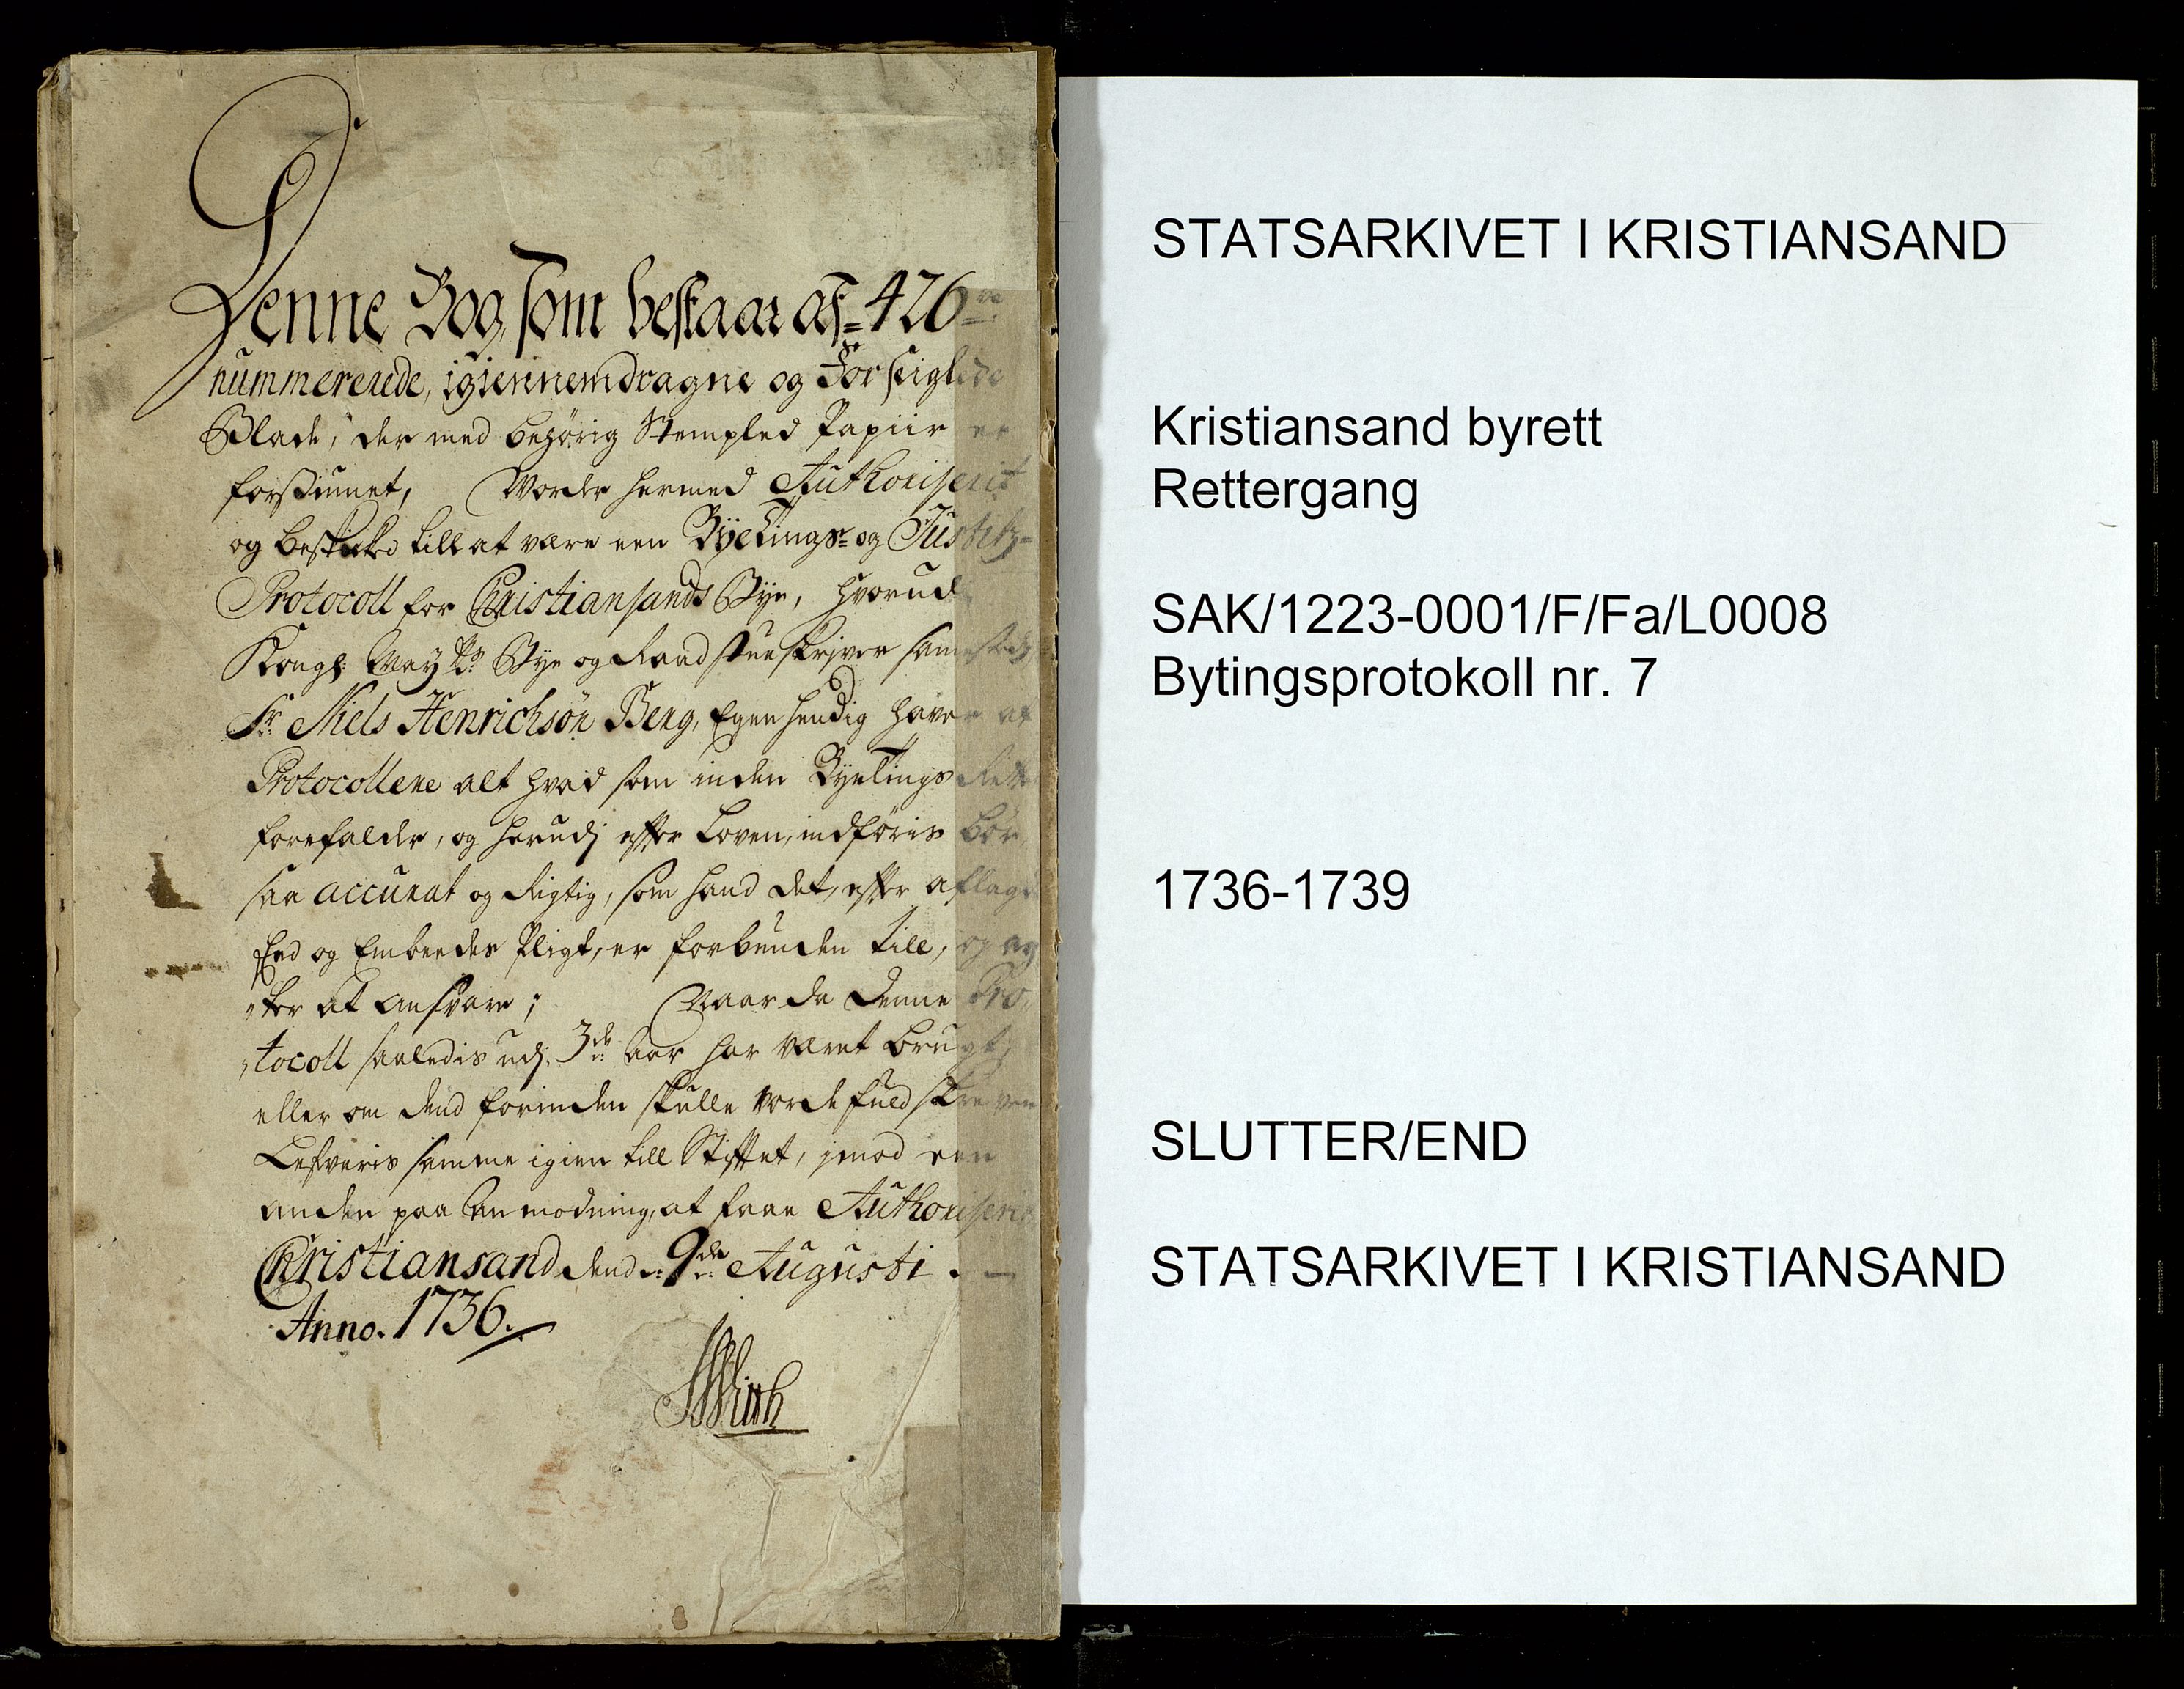 Denne Bog, som bestaar af 426
nummererede, igiennemdragne og Forseiglede
Blade, der med behørig Stempled Papiir er
forsiunet, Worder hermed Authoriserit
og beskicked till at være een Byetings- og Justitz-
Protocoll for Christiansands Bye, hvorudi
Kongl: May tz Bye og Raadstueskriver samestedz
Sr. Niels Henrichsøn Berg, Egenhendig haver at
Protocollere alt hvad som inden Byetings Rett
forefalder, og herudj effter Loven, indføris bør,
saa accurat og Rigtig, som hand det, effter aflagde
Eed og Embeedes Pligt, er forbunden till, og ag
„ter at ansvare; Naar da denne Pro„
„tocoll saaledis udj 3de Aar har været brugt,
eller om dend forinden skulle vorde fuldskreven
Lefveris samme igien till Stifftet, jmod een
anden paa anmodning, at faae Authoriserit
Christiansand dend 9de Augusti. —
Anno. 1736.
STATSARKIVET I KRISTIANSAND
Kristiansand byrett
Rettergang
SAK/1223-0001/F/Fa/L0008
Bytingsprotokoll nr. 7
1736-1739
SLUTTER/END
STATSARKIVET I KRISTIANSAND